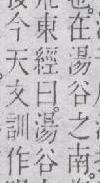 也在湯谷之南
東經曰湯谷
後今天文訓作